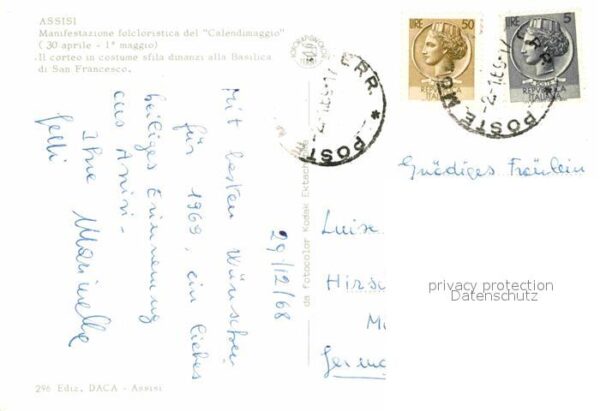 ASSISI
Manifestazione folcloristica del "Calendimaggio"
( 30 aprile - 1° maggio)
Il corteo in costume sfila dinanzi alla Basilica
di San Francesco.
Mit besten Wünschen
für 1969, ein liebes
heiliges Erinnerung
aus Assisi -
Ihre Marinella
29/12/68
da fotocolor Kodak Ektach
LIRE 50
REPVBBLICA
ITALIANA
LIRE 5
REPVBBLICA
ITALIANA
POSTE
POSTE
Gnädiges Fräulein
Luise
Hirsc
Germa
privacy protection
Datenschutz
296 Ediz. DACA - Assisi